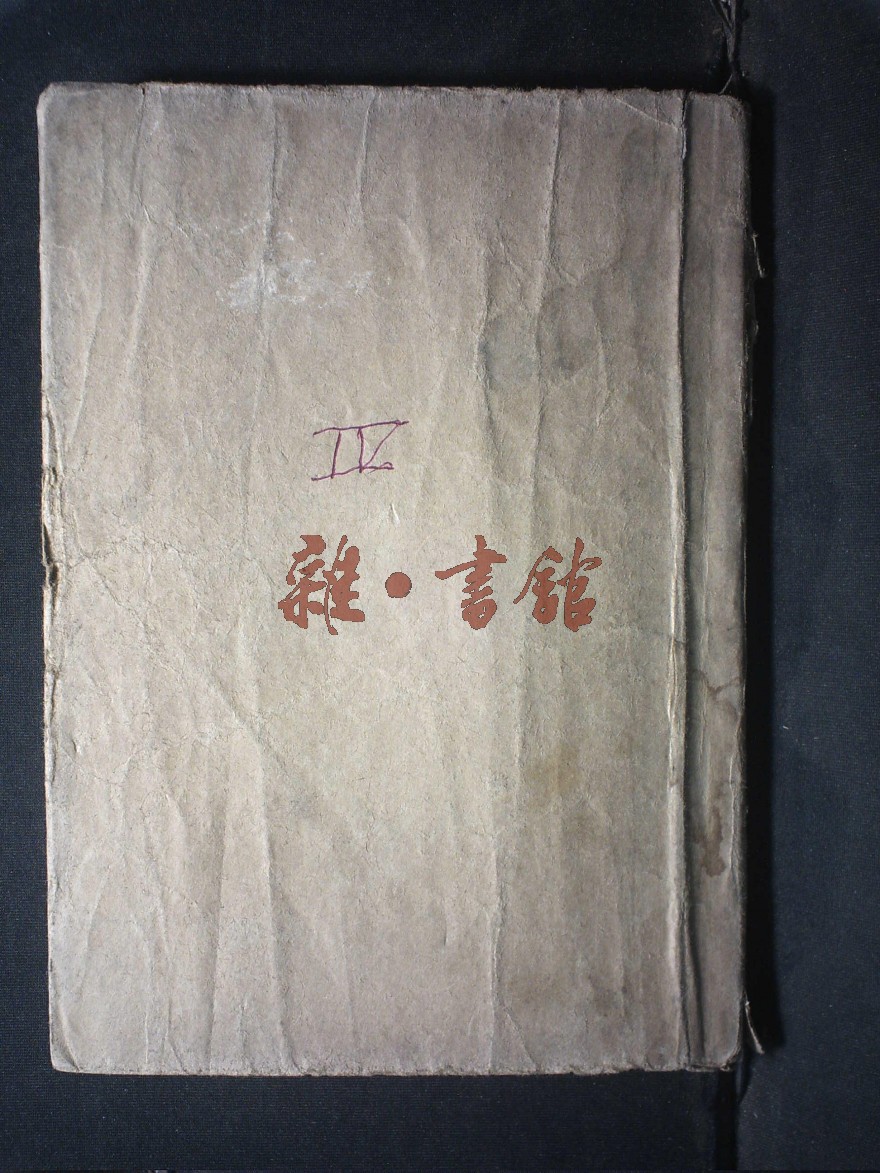 IV
雜·書館